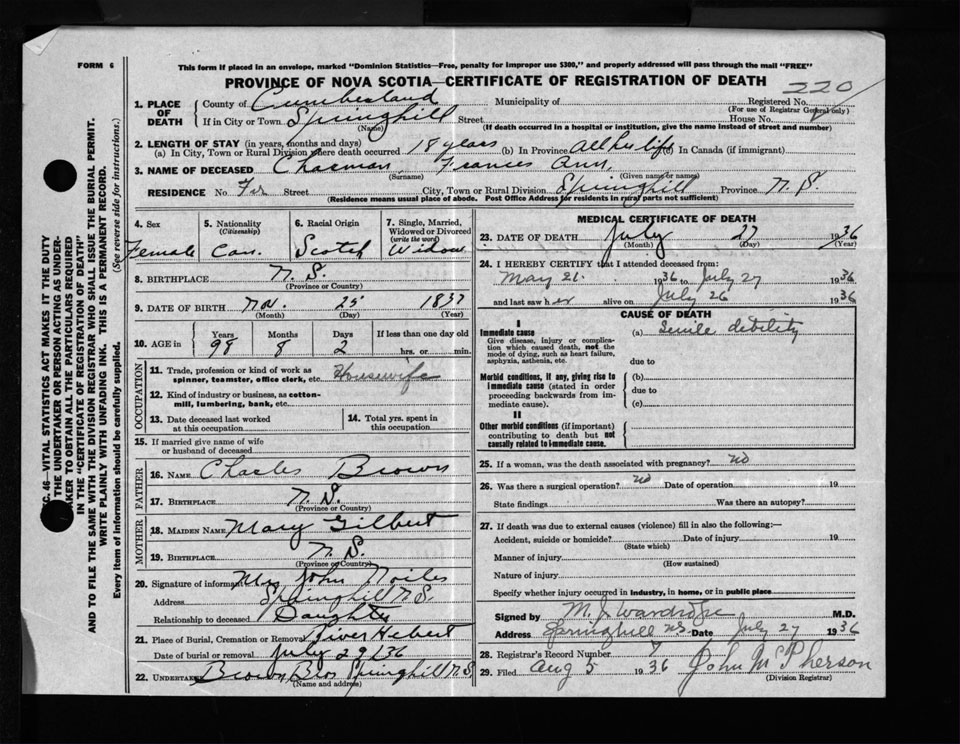 FORM 6
This form if placed in an envelope, marked "Dominion Statistics—Free, penalty for improper use $300," and properly addressed will pass through the mail "FREE"
PROVINCE OF NOVA SCOTIA—CERTIFICATE OF REGISTRATION OF DEATH
220
1. PLACE OF DEATH County of Cumberland Municipality of Registered No.
(For use of Registrar General only)
If in City or Town Springhill Street House No.
(Name) (If death occurred in a hospital or institution, give the name instead of street and number)
2. LENGTH OF STAY (in years, months and days)
(a) In City, Town or Rural Division where death occurred 18 years (b) In Province All her life (c) In Canada (if immigrant)
3. NAME OF DECEASED Frances Ann
(Surname) (Given name or names)
RESIDENCE No Street City, Town or Rural Division Springhill Province N. S.
(Residence means usual place of abode. Post Office Address for residents in rural parts not sufficient)
4. Sex Female
5. Nationality (Citizenship) Can.
6. Racial Origin Scotch
7. Single, Married, Widowed or Divorced (write the word) Widow
8. BIRTHPLACE N. S.
(Province or Country)
9. DATE OF BIRTH Nov. 25 1837
(Month) (Day) (Year)
10. AGE in Years 98 Months 8 Days 2 If less than one day old hrs. or min.
OCCUPATION
11. Trade, profession or kind of work as spinner, teamster, office clerk, etc. Housewife
12. Kind of industry or business, as cotton-mill, lumbering, bank, etc.
13. Date deceased last worked at this occupation
14. Total yrs. spent in this occupation
15. If married give name of wife or husband of deceased
FATHER
16. NAME Charles Brown
17. BIRTHPLACE N. S.
(Province or Country)
MOTHER
18. MAIDEN NAME Mary Gilbert
19. BIRTHPLACE N. S.
(Province or Country)
20. Signature of informant Mrs John Noiles
Address Springhill N.S.
Relationship to deceased Daughter
21. Place of Burial, Cremation or Removal River Hebert
Date of burial or removal July 29/36
22. UNDERTAKER Brown Bros Springhill N.S
(Name and address)
MEDICAL CERTIFICATE OF DEATH
23. DATE OF DEATH July 27 1936
(Month) (Day) (Year)
24. I HEREBY CERTIFY that I attended deceased from:
May 21. 36 to July 27 1936
and last saw her alive on July 26 1936
CAUSE OF DEATH
I
Immediate cause (a) Senile debility
Give disease, injury or complication which caused death, not the mode of dying, such as heart failure, asphyxia, asthenia, etc.
due to
Morbid conditions, if any, giving rise to immediate cause (stated in order proceeding backwards from immediate cause).
(b)
due to
(c)
II
Other morbid conditions (if important) contributing to death but not causally related to immediate cause.
25. If a woman, was the death associated with pregnancy? no
26. Was there a surgical operation? no Date of operation 19
State findings Was there an autopsy?
27. If death was due to external causes (violence) fill in also the following:—
Accident, suicide or homicide? Date of injury 19
(State which)
Manner of injury
(How sustained)
Nature of injury
Specify whether injury occurred in industry, in home, or in public place
Signed by M. J Wardrope M.D.
Address Springhill NS Date July 27 1936
28. Registrar's Record Number
29. Filed Aug 5 1936 John McPherson
(Division Registrar)
C. 46—VITAL STATISTICS ACT MAKES IT THE DUTY
THE UNDERTAKER OR PERSON ACTING AS UNDER-
AKER TO OBTAIN ALL THE PARTICULARS REQUIRED
IN THE "CERTIFICATE OF REGISTRATION OF DEATH"
AND TO FILE THE SAME WITH THE DIVISION REGISTRAR WHO SHALL ISSUE THE BURIAL PERMIT.
WRITE PLAINLY WITH UNFADING INK. THIS IS A PERMANENT RECORD.
Every item of information should be carefully supplied. (See reverse side for instructions.)